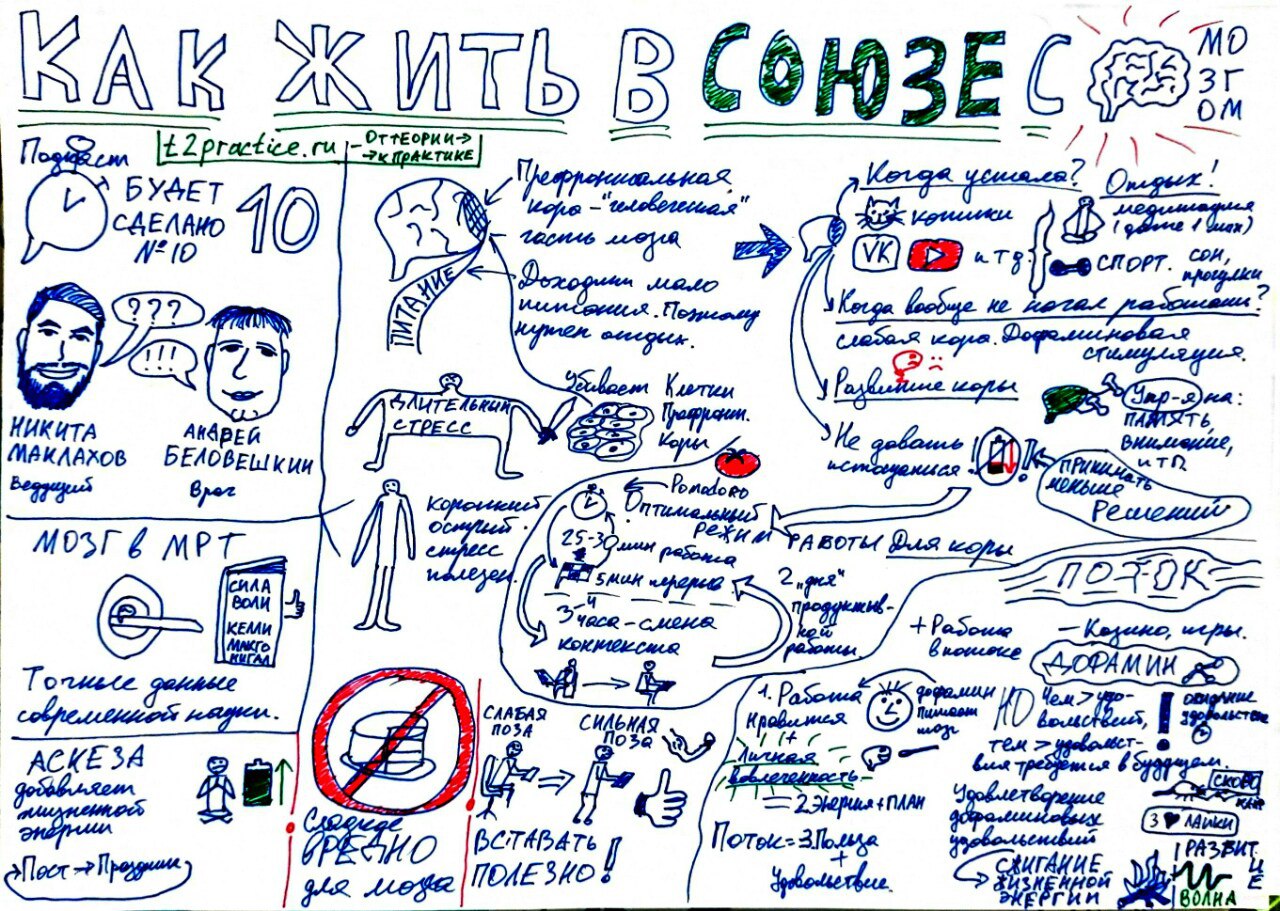 КАК ЖИТЬ В СОЮЗЕ С
МО
ЗГ
ОМ
Подкаст
БУДЕТ
СДЕЛАНО
№10
10
t2practice.ru
- ОТ ТЕОРИИ →
→ К ПРАКТИКЕ
???
!!!
НИКИТА
МАКЛАХОВ
Ведущий
АНДРЕЙ
БЕЛОВЕШКИН
Врач
МОЗГ В МРТ
СИЛА
ВОЛИ
КЕЛЛИ
МАКГО
НИГАЛ
Точные данные
современной науки.
АСКЕЗА
добавляет
жизненной
энергии
→Пост→Праздник
Префронтальная
кора - "человеческая"
часть мозга
ПИТАНИЕ
Доходит мало
питания. Поэтому
нужен отдых.
ДЛИТЕЛЬНЫЙ
СТРЕСС
Убивает Клетки
Префронт.
Коры
Короткий
острый
стресс
полезен.
Pomodoro
Оптимальный
РЕЖИМ
РАБОТЫ Для коры
25-30 мин работа
5 мин перерыв
3-4
часа - смена
контекста
2 „дня"
продуктив-
ной
работы.
Сладкое
ВРЕДНО
для мозга
СЛАБАЯ
ПОЗА
СИЛЬНАЯ
ПОЗА
ВСТАВАТЬ
ПОЛЕЗНО!
Когда устала?
котики
VK
и тд
Отдых!
медитация
СПОРТ. сон,
прогулки
Когда вообще не начал работать?
слабая кора. Дофаминовая
стимуляция.
Развитие коры
Упр-я на:
ПАМЯТЬ,
внимание,
и тп.
Не давать
истощаться!
ПРИНИМАТЬ
меньше
Решений
ПОТОК
+ Работа
в потоке
- Казино, игры.
ДОФАМИН
1. Работа
Нравится
+
Личная
вовлеченность
= 2 Энергия + ПЛАН
дофамин
питает
мозг
Поток = 3. Польза
+
Удовольствие.
НО Чем > удо-
вольствий,
тем > удовольст-
вия требуется в будущем.
! ожидание
удовольствия
Удовлетворение
дофаминовых
удовольствий
3 ЛАЙКИ
СЖИГАНИЕ
ЖИЗНЕННОЙ
ЭНЕРГИИ
РАЗВИТ
И
Е
ВОЛНА